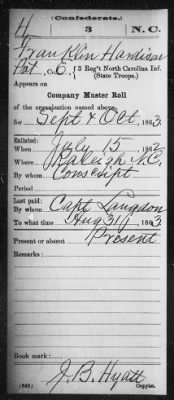 (Confederate.)
H 3 N.C.
Franklin Hardison
Pvt, Co. E, 3 Reg't North Carolina Inf.
(State Troops.)
Appears on
Company Muster Roll
of the organization named above,
for Sept & Oct, 1863
Enlisted:
When July 15, 1862
Where Raleigh N.C.
By whom Conscript
Period
Last paid:
By whom Capt Langdon
To what time Aug 31, 1863
Present or absent Present
Remarks:
Book mark:
J. B. Hyatt
(642) Copyist.